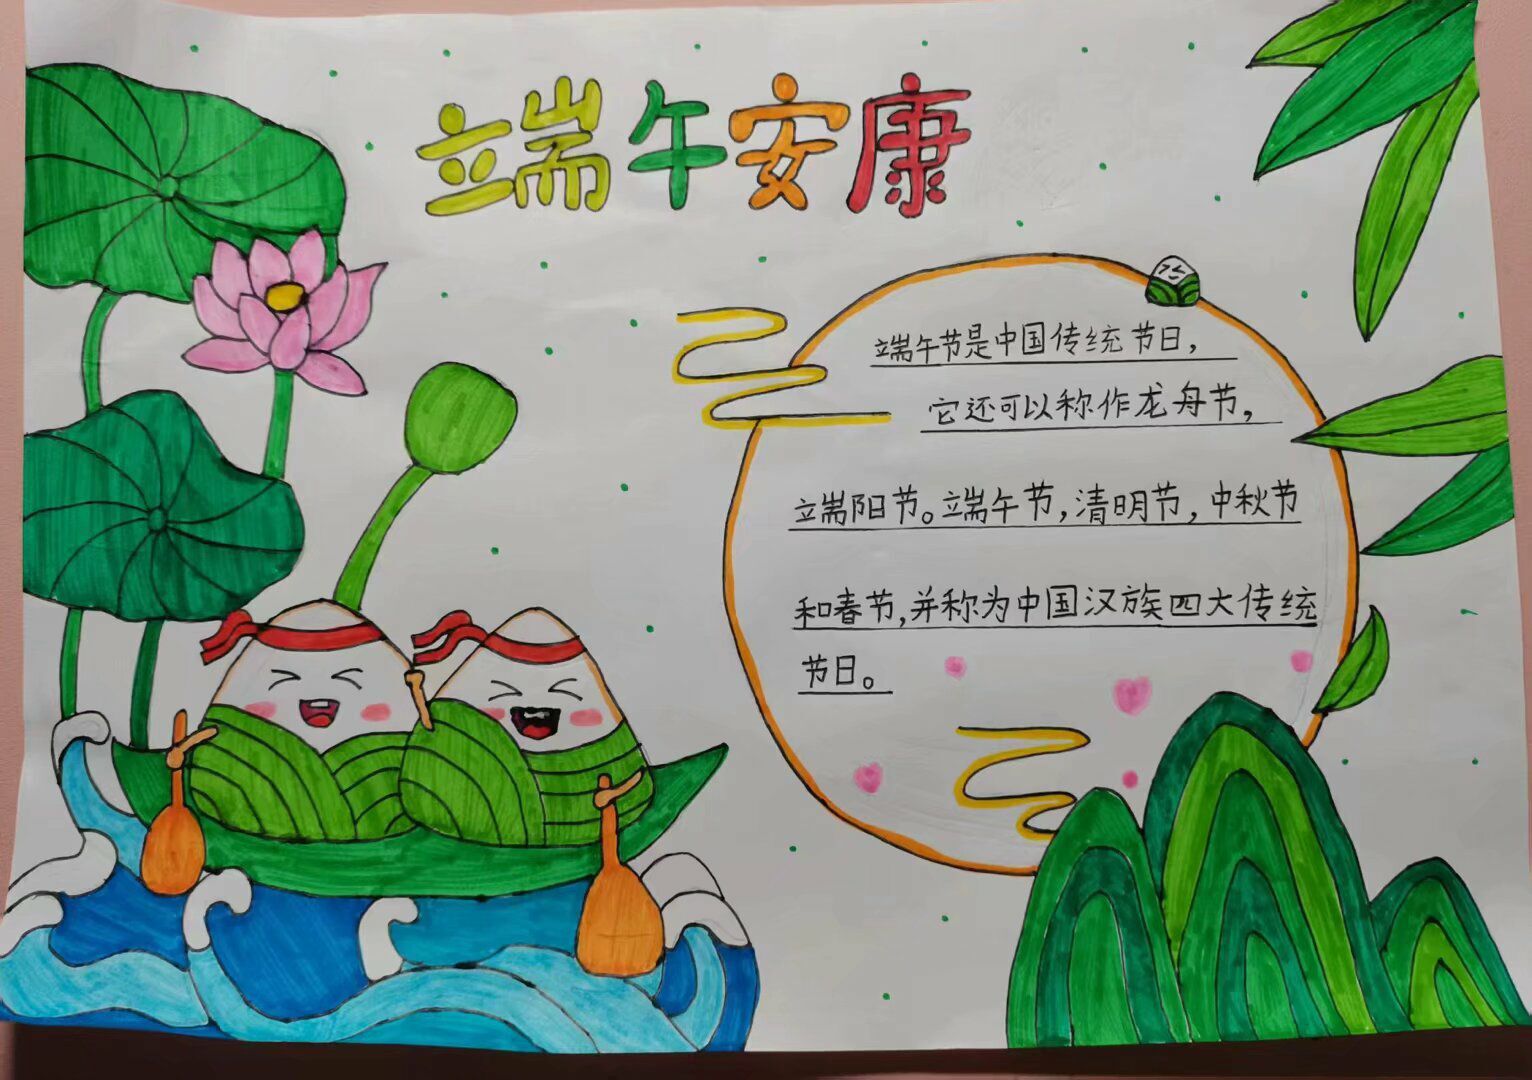 端午安康
端午节是中国传统节日，
它还可以称作龙舟节，
端阳节。端午节，清明节，中秋节
和春节，并称为中国汉族四大传统
节日。